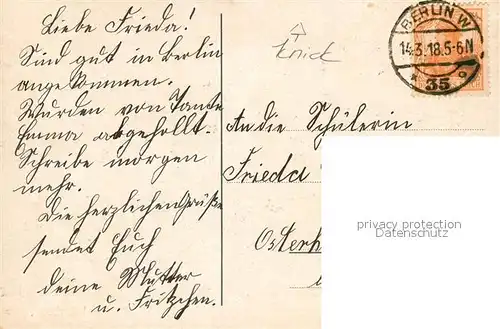 Liebe Frieda!
Sind gut in Berlin
angekommen.
Wurden von Tante
Emma abgehollt.
Schreibe morgen
mehr.
Die herzlichen Grüße
sendet Euch
deine Mutter
u. Fritzchen.
Knick
BERLIN W
14.3.18.5-6N
* 35 g
An die Schülerin
Frieda
Osterh
privacy protection
Datenschutz